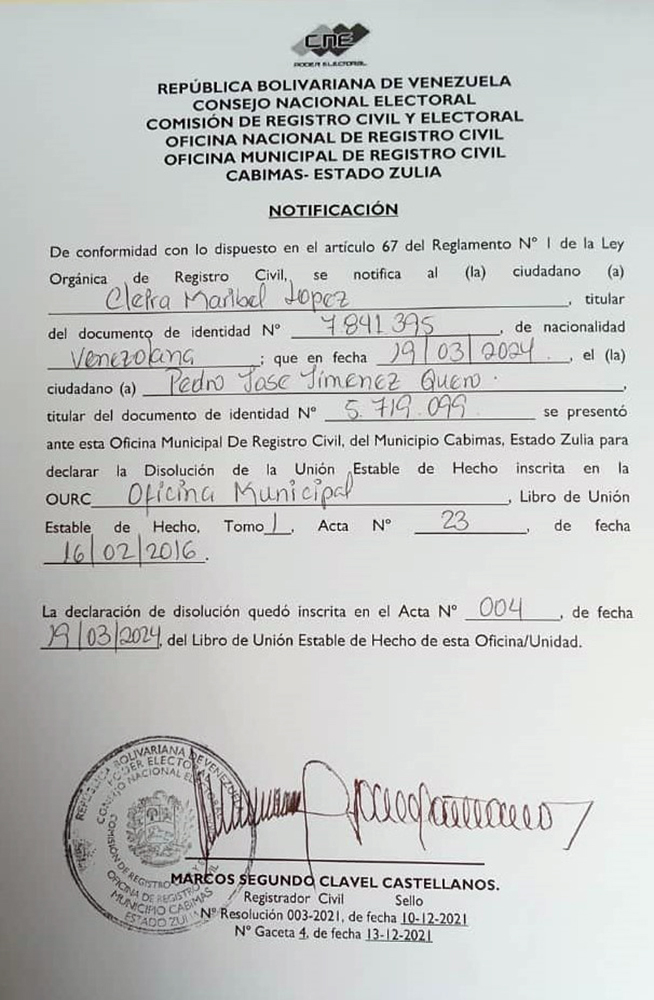 CNE
PODER ELECTORAL
REPÚBLICA BOLIVARIANA DE VENEZUELA
CONSEJO NACIONAL ELECTORAL
COMISIÓN DE REGISTRO CIVIL Y ELECTORAL
OFICINA NACIONAL DE REGISTRO CIVIL
OFICINA MUNICIPAL DE REGISTRO CIVIL
CABIMAS- ESTADO ZULIA
NOTIFICACIÓN
De conformidad con lo dispuesto en el artículo 67 del Reglamento N° 1 de la Ley
Orgánica de Registro Civil, se notifica al (la) ciudadano (a)
Maribel Lopez, titular
del documento de identidad N° 7.841.395, de nacionalidad
Venezolana; que en fecha 19/03/2024, el (la)
ciudadano (a) Pedro Jose Jimenez Quero.,
titular del documento de identidad N° 5.719.099 se presentó
ante esta Oficina Municipal De Registro Civil, del Municipio Cabimas, Estado Zulia para
declarar la Disolución de la Unión Estable de Hecho inscrita en la
OURC Oficina Municipal, Libro de Unión
Estable de Hecho, Tomo 1, Acta N° 23, de fecha
16/02/2016.
La declaración de disolución quedó inscrita en el Acta N° 004, de fecha
19/03/2024, del Libro de Unión Estable de Hecho de esta Oficina/Unidad.
REPÚBLICA BOLIVARIANA DE VENEZUELA
PODER ELECTORAL
CONSEJO NACIONAL
COMISIÓN DE REGISTRO CIVIL
OFICINA DE REGISTRO CIVIL
MUNICIPIO CABIMAS
ESTADO ZULIA
MARCOS SEGUNDO CLAVEL CASTELLANOS.
Registrador Civil Sello
N° Resolución 003-2021, de fecha 10-12-2021
N° Gaceta 4, de fecha 13-12-2021